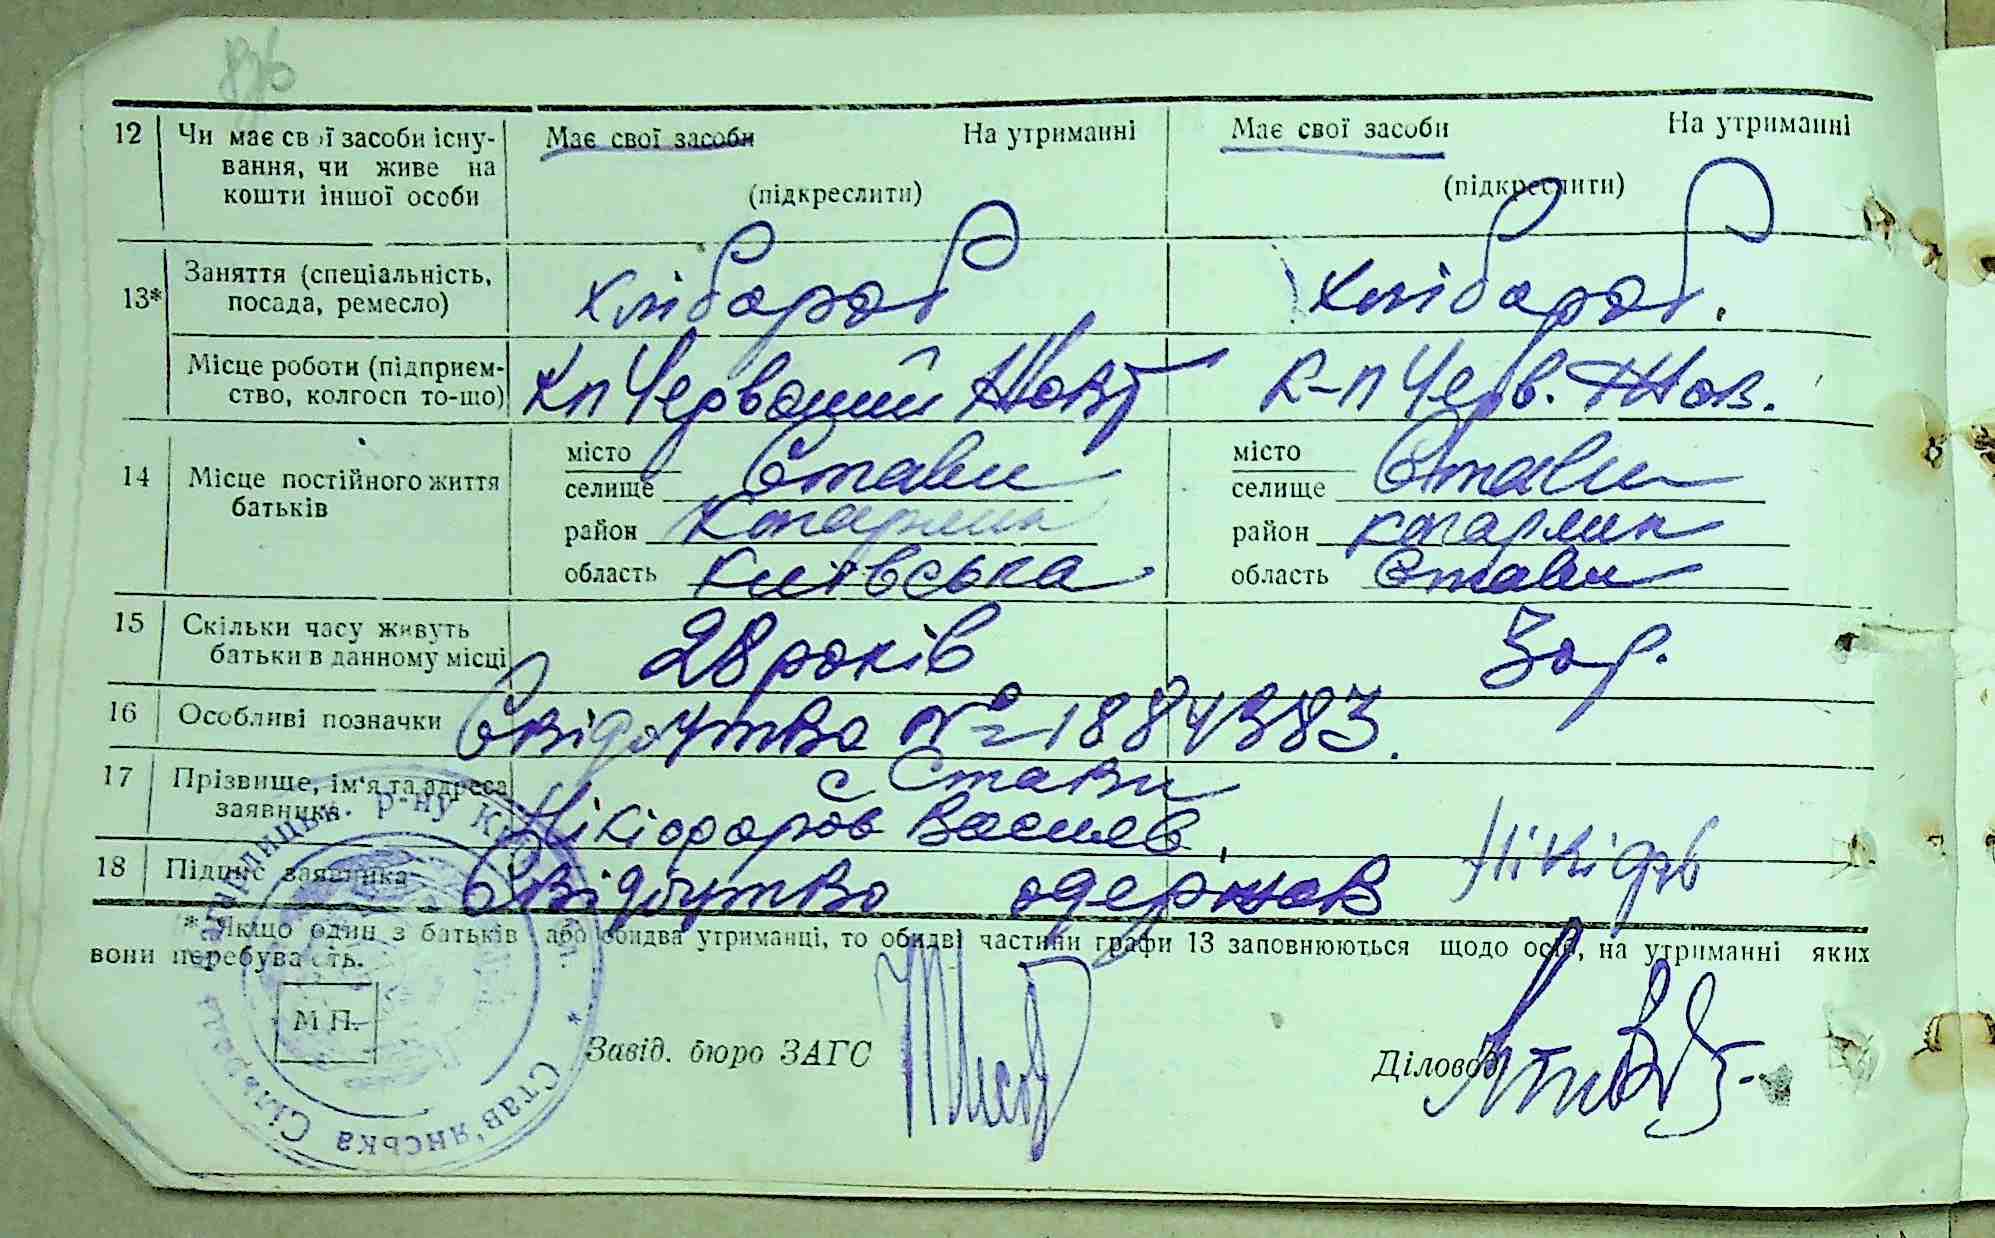 12 Чи має свої засоби існу- Має свої засоби На утриманні Має свої засоби На утриманні
вання, чи живе на
кошти іншої особи (підкреслити) (підкреслити)
13* Заняття (спеціальність, хлібороб хлібороб.
посада, ремесло)
Місце роботи (підприєм- Кп Червоний Жовт К-п Черв. Жов.
ство, колгосп то-що)
14 Місце постійного життя місто Стави місто Стави
батьків селище селище
район Кагарлик район Кагарлик
область Київська область Стави
15 Скільки часу живуть 28 років 30 р.
батьки в данному місці
16 Особливі позначки Свідоцтво № 1884383.
17 Прізвище, ім'я та адреса с Стави
заявника Василь,
18 Підпис заявника Свідоцтво одержав
* Якщо один з батьків або обидва утриманці, то обидві частини графи 13 заповнюються щодо осіб, на утриманні яких
вони перебувають.
М П.
Завід. бюро ЗАГС Діловод
Став'янська Сільрада р-ну